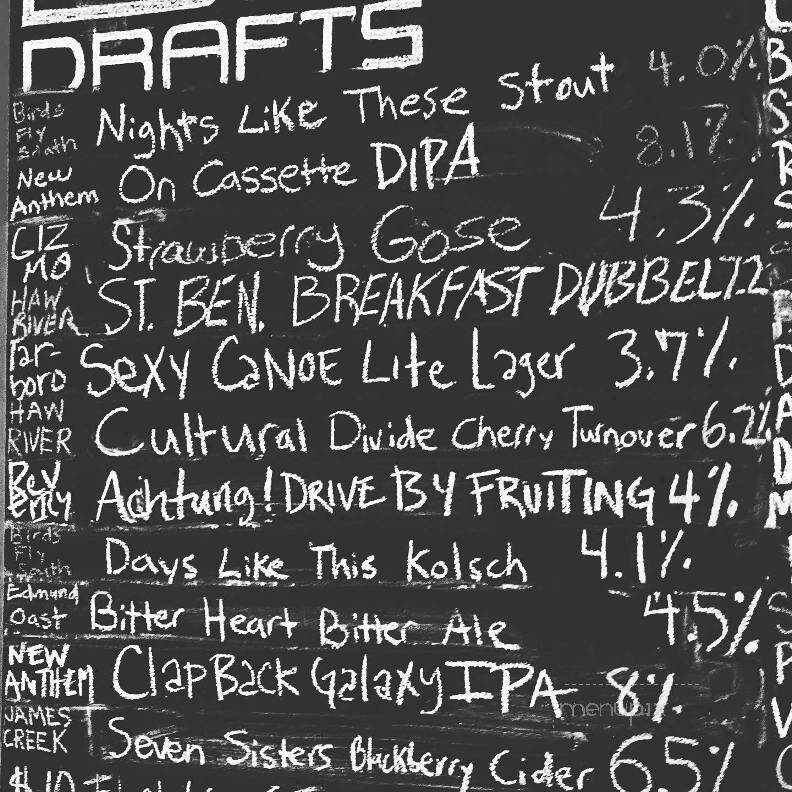 DRAFTS
Birds Fly South Nights Like These Stout 4.0%
New Anthem On Cassette DIPA 8.1%
GIZMO Strawberry Gose 4.3%
HAW RIVER ST. BEN. BREAKFAST DUBBEL 7.2
Tarboro Sexy CANOE Lite Lager 3.7%
HAW RIVER Cultural Divide Cherry Turnover 6.2%
Achtung! DRIVE BY FRUITING 4%
Birds Fly South Days Like This Kolsch 4.1%
Edmund Oast Bitter Heart Bitter Ale 4.5%
NEW ANTHEM ClapBack Galaxy IPA 8%
JAMES CREEK Seven Sisters Blackberry Cider 6.5%
$10